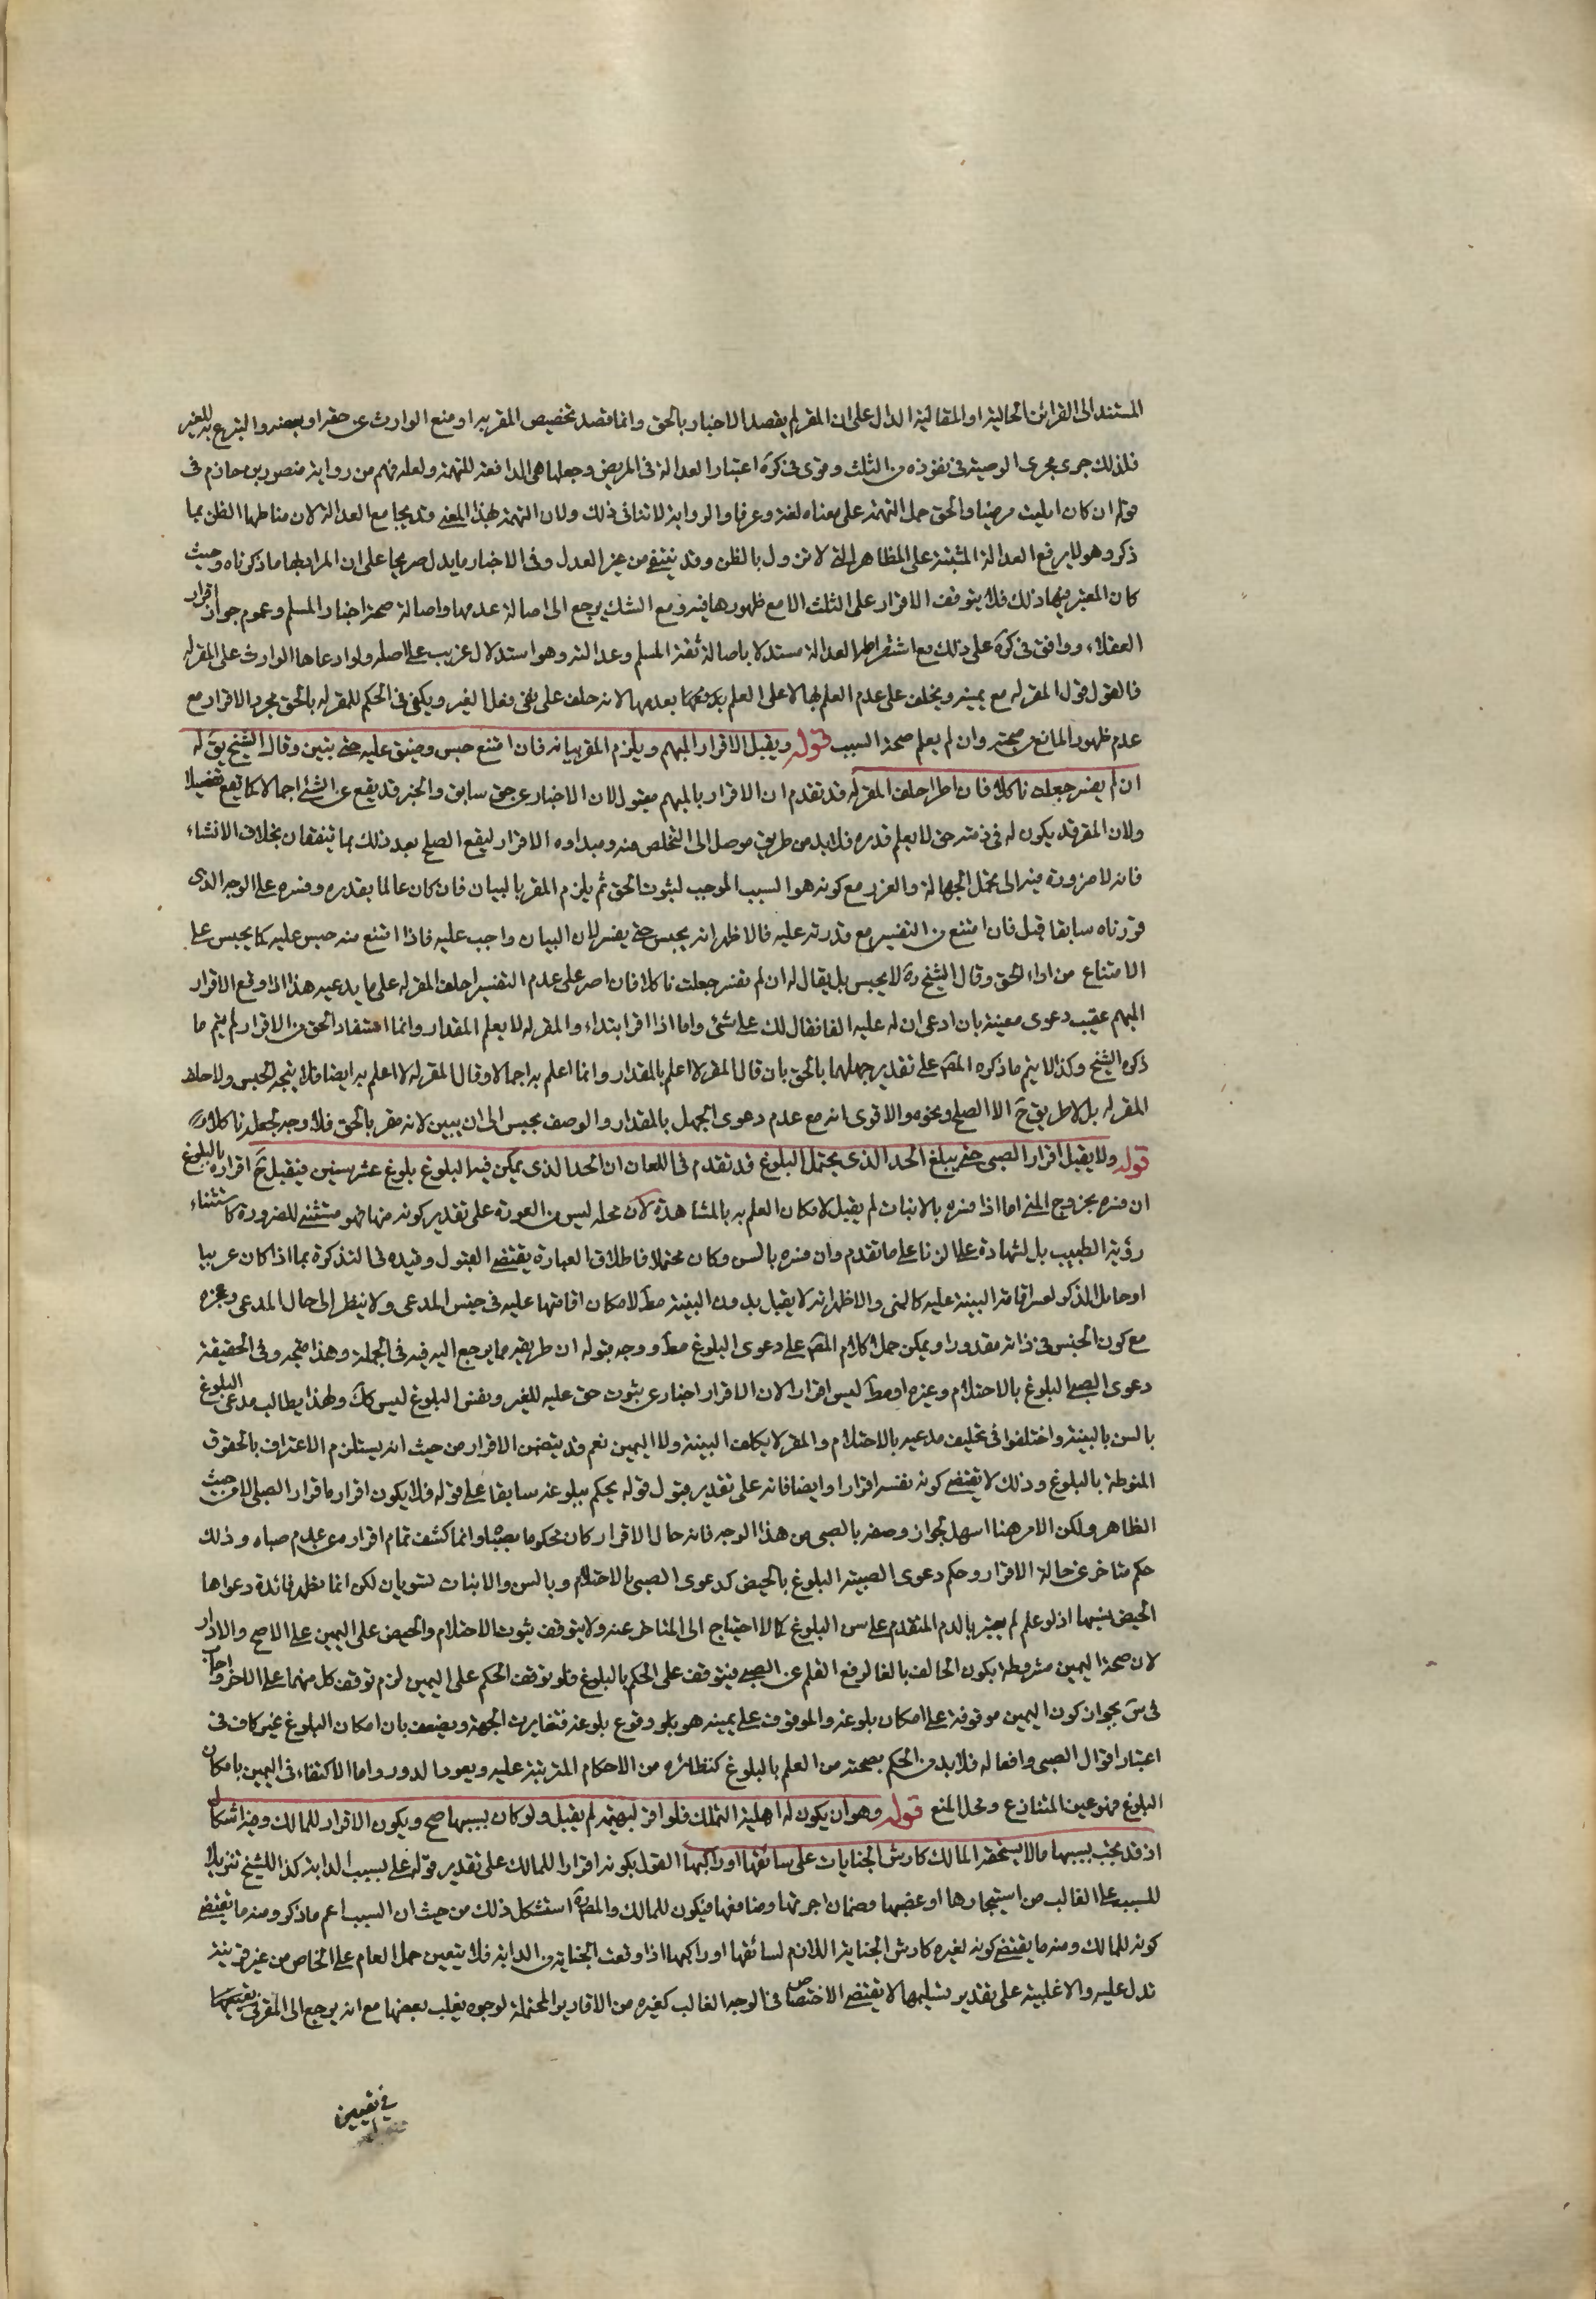 المستند الى القرائن الحالية او المقالية الدال على ان المقر لم يقصد الاخبار بالحق وانما قصد تخصيص المقر به او منع الوارث عن حقه او بعضه والتبرع به للغير
فلذلك جرى مجرى الوصية فى نفوذه من الثلث وقوى فى كرة اعتبار العدالة فى المريض وجعلها هى الدافعة للتهمة ولعله فهم من رواية منصور بن حازم فى
قوله ان كان المليت مرضيا والحق حمل التهمة على معناه لغة وعرفا والرواية لا تنافى ذلك ولان التهمة بهذا المعنى قد يجامع العدالة لان مناطها الظن بما
ذكر وهو لا يرفع العدالة المثبتة على المظاهر التى لا تزول بالظن وقد ينتفى من غير العدل وفى الاخبار ما يدل صريحا على ان المراد بها ما ذكرناه وحيث
كان المعتبر فيها ذلك فلا يتوقف الاقرار على الثلث الا مع ظهورها فيه ومع الشك يرجع الى اصالة عدمها واصالة صحة اخبار المسلم وعموم جواز اقرار
العقلاء ووافق فى كرة على ذلك مع اشتراط العدالة مستدلا باصالة ثقة المسلم وعدالته وهو استدلال غريب على اصله ولو ادعاها الوارث على المقر له
فالقول قول المقر له مع يمينه ويحلف على عدم العلم بها لا على العلم بعدمها لانه حلف على نفى فعل الغير ويكفى فى الحكم للمقر له بالحق مجرد الاقرار مع
عدم ظهور المانع من صحته وان لم يعلم صحة السبب قوله ويقبل الاقرار المبهم ويلزم المقر بيانه فان امتنع حبس وضيق عليه حتى يبين وقال الشيخ يق له
ان لم يفسر جعلت ناكلا فان اصر احلف المقر له قد تقدم ان الاقرار بالمبهم مقبول لان الاخبار عن حق سابق والخبر قد يقع عن الشئ اجمالا كما يقع تفصيلا
ولان المقر قد يكون له فى ذمته حق لا يعلم قدره فلا بد من طريق موصل الى التخلص منه ومبداوه الاقرار ليقع الصلح بعد ذلك بما يتفقان بخلاف الانشاء
فانه لا ضرورة فيه الى تحمل الجهالة والغرر مع كونه هو السبب الموجب لثبوت الحق ثم يلزم المقر بالبيان فان كان عالما بقدره وفسره على الوجه الذى
قررناه سابقا قبل فان امتنع من التفسير مع قدرته عليه فالاظهر انه يحبس حتى يفسر لان البيان واجب عليه فاذا امتنع منه حبس عليه كما يحبس على
الامتناع من اداء الحق وقال الشيخ ره لا يحبس بل يقال له ان لم تفسر جعلت ناكلا فان اصر على عدم التفسير احلف المقر له على ما يدعيه هذا اذا وقع الاقرار
المبهم عقيب دعوى معينة بان ادعى ان له عليه الفا فقال لك على شئ واما اذا اقر ابتداء والمقر له لا يعلم المقدار وانما استفاد الحق من الاقرار لم يتم ما
ذكره الشيخ وكذا لا يتم ما ذكره المص على تقدير جهلهما بالحق بان قال المقر لا اعلم بالمقدار وانما اعلم به اجمالا وقال المقر له لا اعلم به ايضا فلا يتجه الحبس ولا احلاف
المقر له بل لا طريق ح الا الصلح ونحوه والاقوى انه مع عدم دعوى الجهل بالمقدار والوصف يحبس الى ان يبين لانه مقر بالحق فلا وجه لجعله ناكلا
قوله ولا يقبل اقرار الصبى حتى يبلغ الحد الذى يحتمل البلوغ قد تقدم فى اللعان ان الحد الذى يمكن فيه البلوغ بلوغ عشر سنين فيقبل ح اقراره بالبلوغ
ان فسره بخروج المنى اما اذا فسره بالانبات لم يقبل لامكان العلم به بالمشاهدة لان محله ليس من العورة على تقدير كونه منها فهو مستثنى للضرورة كاستثناء
رؤية الطبيب بل لشهادة على الزنا على ما تقدم وان فسره بالسن وكان محتملا فاطلاق العبارة يقتضى القبول وقيده فى التذكرة بما اذا كان غريبا
او خامل الذكر لعسر اقامة البينة عليه كالمنى والاظهر انه لا يقبل بدون البينة مط لامكان اقامتها عليه فى جنس المدعى ولا ينظر الى حال المدعى وعجزه
مع كون الجنس فى ذاته مقدورا ويمكن حمل كلام المص على دعوى البلوغ مط ووجه قبوله ان طريقه مما يرجع اليه فيه فى الجملة وهذا متجه وفى الحقيقة
دعوى الصبى البلوغ بالاحتلام وغيره او مط ليس اقرارا لان الاقرار اخبار عن ثبوت حق عليه للغير ونفس البلوغ ليس كك ولهذا يطالب مدعى البلوغ
بالسن بالبينة واختلفوا فى تحليف مدعيه بالاحتلام والمقر لا يكلف البينة ولا اليمين نعم قد يتضمن الاقرار من حيث انه يستلزم الاعتراف بالحقوق
المنوطة بالبلوغ وذلك لا يقتضى كونه نفسه اقرارا وايضا فانه على تقدير قبول قوله يحكم ببلوغه سابقا على قوله فلا يكون اقراره اقرار الصبى الا من حيث
الظاهر ولكن الامر هنا اسهل لجواز وصفه بالصبى من هذا الوجه فانه حال الاقرار كان محكوما بصباه وانما كشف تمام اقراره عن عدم صباه وذلك
حكم متاخر عن حالة الاقرار وحكم دعوى الصبية البلوغ بالحيض كدعوى الصبى بالاحتلام وبالسن والانبات يستويان لكن انما يظهر فائدة دعواها
الحيض فيهما اذ لو علم لم يعتبر بالدم المتقدم على سن البلوغ كما لا احتياج الى المتاخر عنه ولا يتوقف ثبوت الاحتلام والحيض على اليمين على الاصح والا دار
لان صحة اليمين مشروطة بكون الحالف بالغا لرفع القلم عن الصبى فيتوقف على الحكم بالبلوغ فلو توقف الحكم على اليمين لزم توقف كل منهما على الاخر واجاب
فى س بجواز كون اليمين موقوفة على امكان بلوغه والموقوف على يمينه هو وقوع بلوغه فتغايرت الجهة ويضعف بان امكان البلوغ غير كاف فى
اعتبار اقوال الصبى وافعاله فلا بد من الحكم بصحته من العلم بالبلوغ كنظائره من الاحكام المترتبة عليه ويعود الدور واما الاكتفاء فى اليمين بامكان
البلوغ فهو عين المتنازع ومحل المنع قوله وهو ان يكون له اهلية التملك فلو اقر لبهيمة لم يقبل ولو كان بسببها صح ويكون الاقرار للمالك وفيه اشكال
اذ قد يجب بسببها ما لا يستحقه المالك كارش الجنايات على سائقها او راكبها القول بكونه اقرارا للمالك على تقدير قوله على بسبب الدابة كذا للشيخ تنزيلا
للسبب على الغالب من استيجارها او غصبها وضمان اجرتها ومنافعها فيكون للمالك والمص ره استشكل ذلك من حيث ان السبب اعم مما ذكر ومنه ما يقتضى
كونه للمالك ومنه ما يقتضى كونه لغيره كارش الجناية اللازم لسائقها او راكبها اذا وقعت الجناية من الدابة فلا يتعين حمل العام على الخاص من غير قرينة
تدل عليه والاغلبية على تقدير تسليمها لا يقتضى الاختصاص فى الوجه الغالب كغيره من الاقارير المحتملة لوجوه يغلب بعضها مع انه يرجع الى المقر فى
فى تعيين